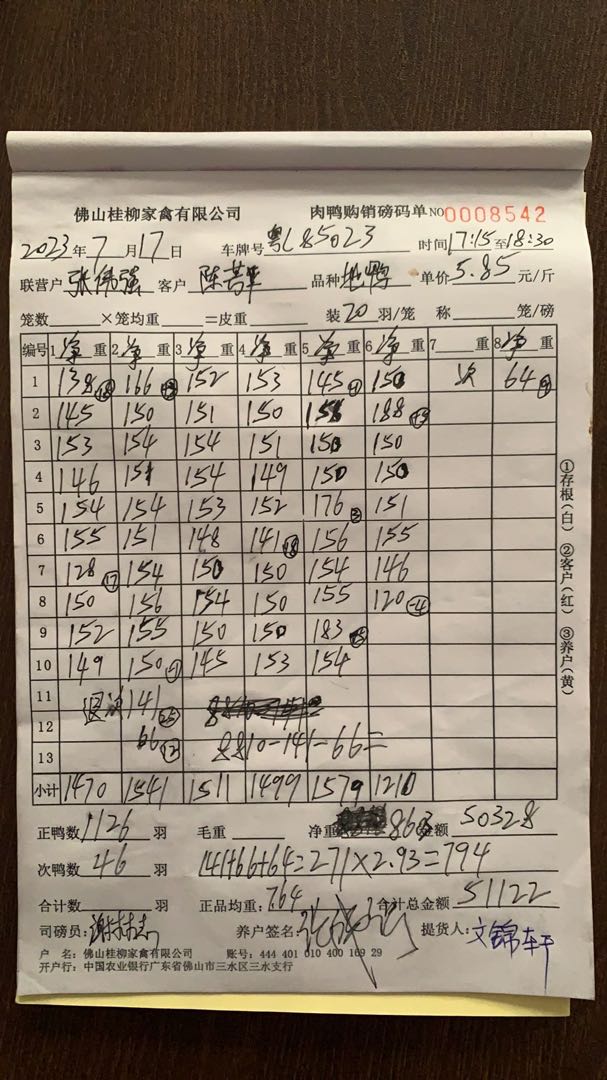 佛山桂柳家禽有限公司 肉鸭购销磅码单 NO 0008542
2023年7月17日 车牌号 粤L85023 时间17:15至18:30
联营户 张伟强 客户 陈 品种 单价5.85元/斤
笼数 ×笼均重 =皮重 装20羽/笼 称 笼/磅
编号 1 净重 2 净重 3 净重 4 净重 5 净重 6 净重 7 重 8 净重
1 138 166 152 153 145 150 次 64
2 145 150 151 150 188
3 153 154 154 151 150 150
4 146 151 154 149 150 150
5 154 154 153 152 176 151
6 155 151 148 141 156 155
7 128 154 150 150 154 146
8 150 156 154 150 155 120
9 152 155 150 150 183
10 149 150 145 153 154
11 退次 141
12 66 8810-141-66=
13
小计 1470 1541 1511 1499 1579 1210
正鸭数 1126 羽 毛重 净重 8603 金额 50328
次鸭数 46 羽 141+66+64=271×2.93=794
合计数 羽 正品均重: 7.64 合计总金额 51122
司磅员: 养户签名: 提货人: 文锦轩
户 名: 佛山桂柳家禽有限公司 账号: 444 401 010 400 169 29
开户行: 中国农业银行广东省佛山市三水区三水支行
①存根(白) ②客户(红) ③养户(黄)